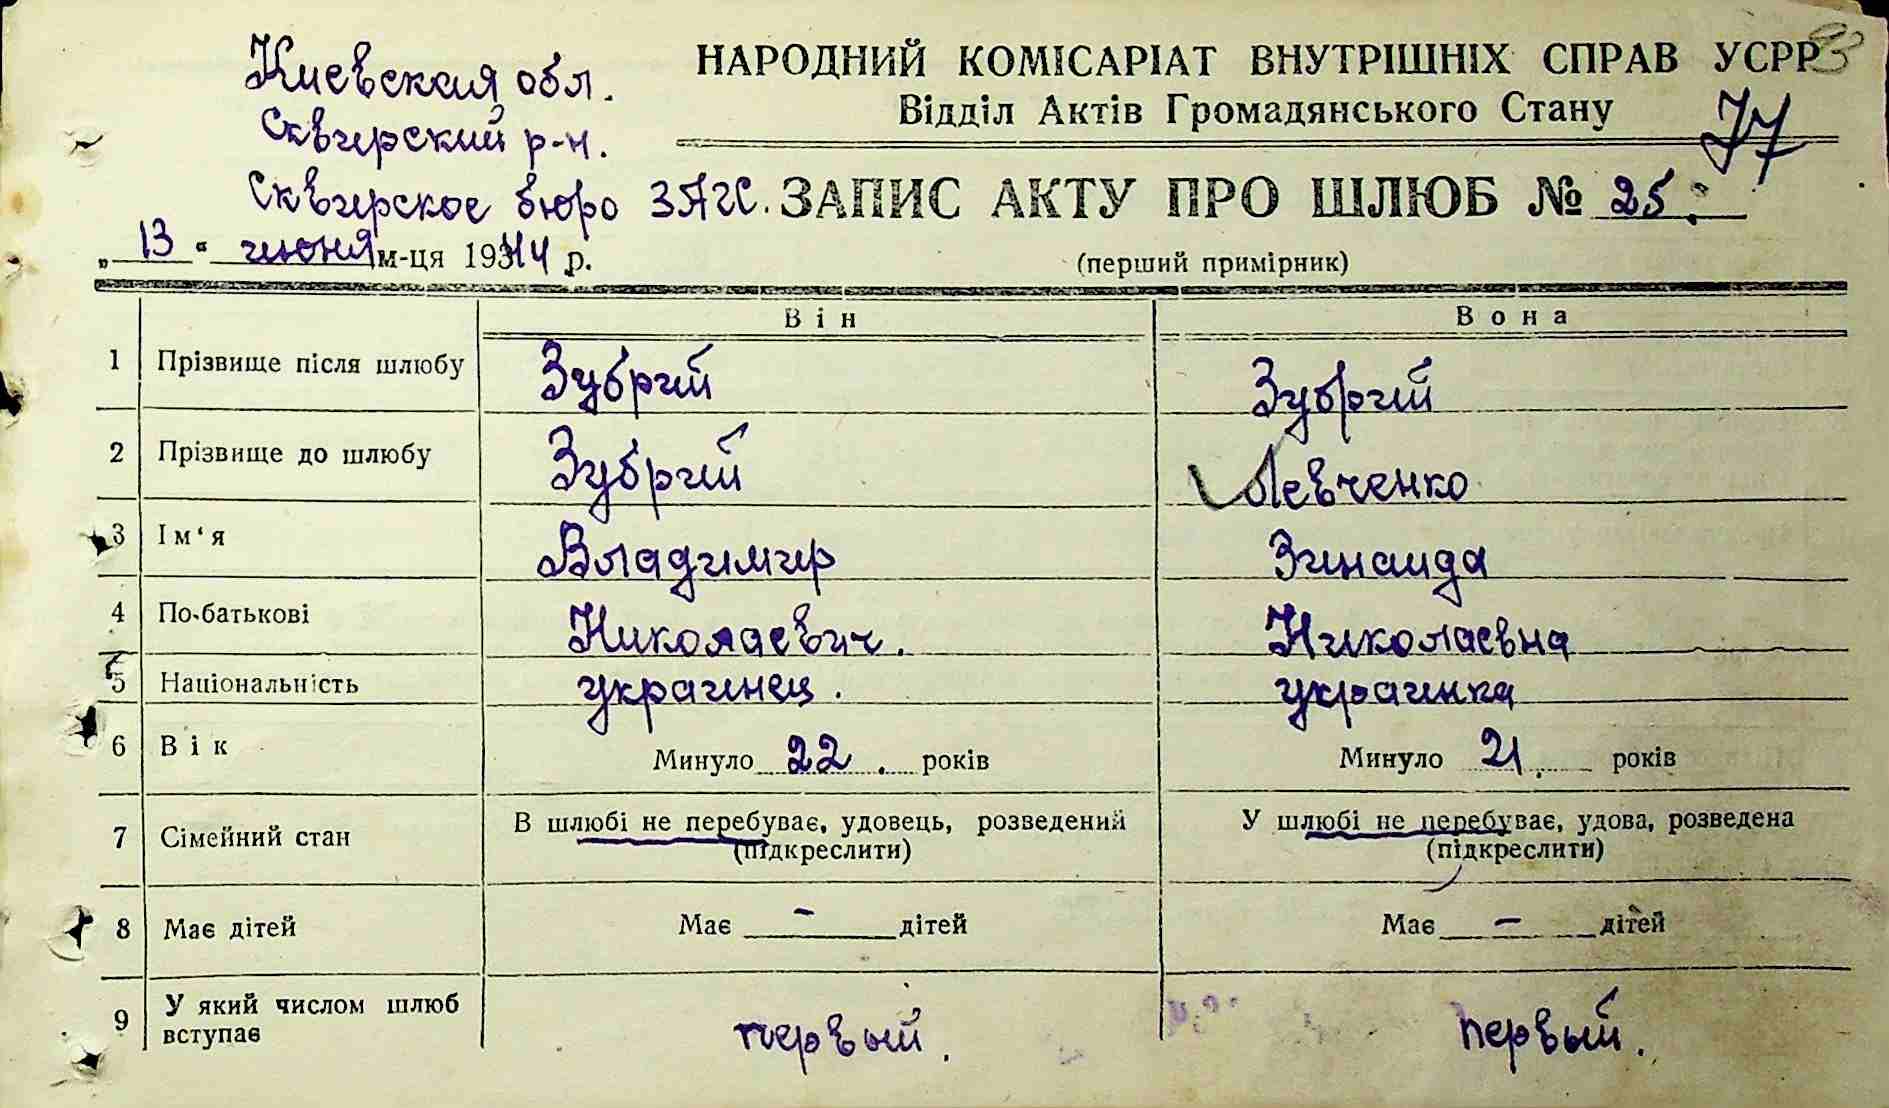 93
Киевская обл.
Сквирский р-н.
Сквирское бюро ЗАГС.
НАРОДНИЙ КОМІСАРІАТ ВНУТРІШНІХ СПРАВ УСРР
Відділ Актів Громадянського Стану
77
ЗАПИС АКТУ ПРО ШЛЮБ № 25.
„13" июня м-ця 1944 р.
(перший примірник)
Він Вона
1 Прізвище після шлюбу Зубрий Зубрий
2 Прізвище до шлюбу Зубрий Левченко
3 Ім'я Владимир Зинаида
4 По-батькові Николаевич. Николаевна
5 Національність украинец. украинка
6 Вік Минуло 22. років Минуло 21. років
7 Сімейний стан В шлюбі не перебуває, удовець, розведений У шлюбі не перебуває, удова, розведена
(підкреслити) (підкреслити)
8 Має дітей Має – дітей Має – дітей
9 У який числом шлюб
вступає первый. первый.